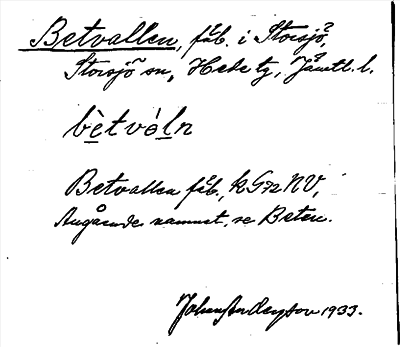 Betvallen, fäb. i Storsjö,
Storsjö sn, Hede tg, Jämtl. l.
bètvàln
Betvallen fäb, kG72NV,
Angående namnet, se Beten.
Johan Anderson 1933.